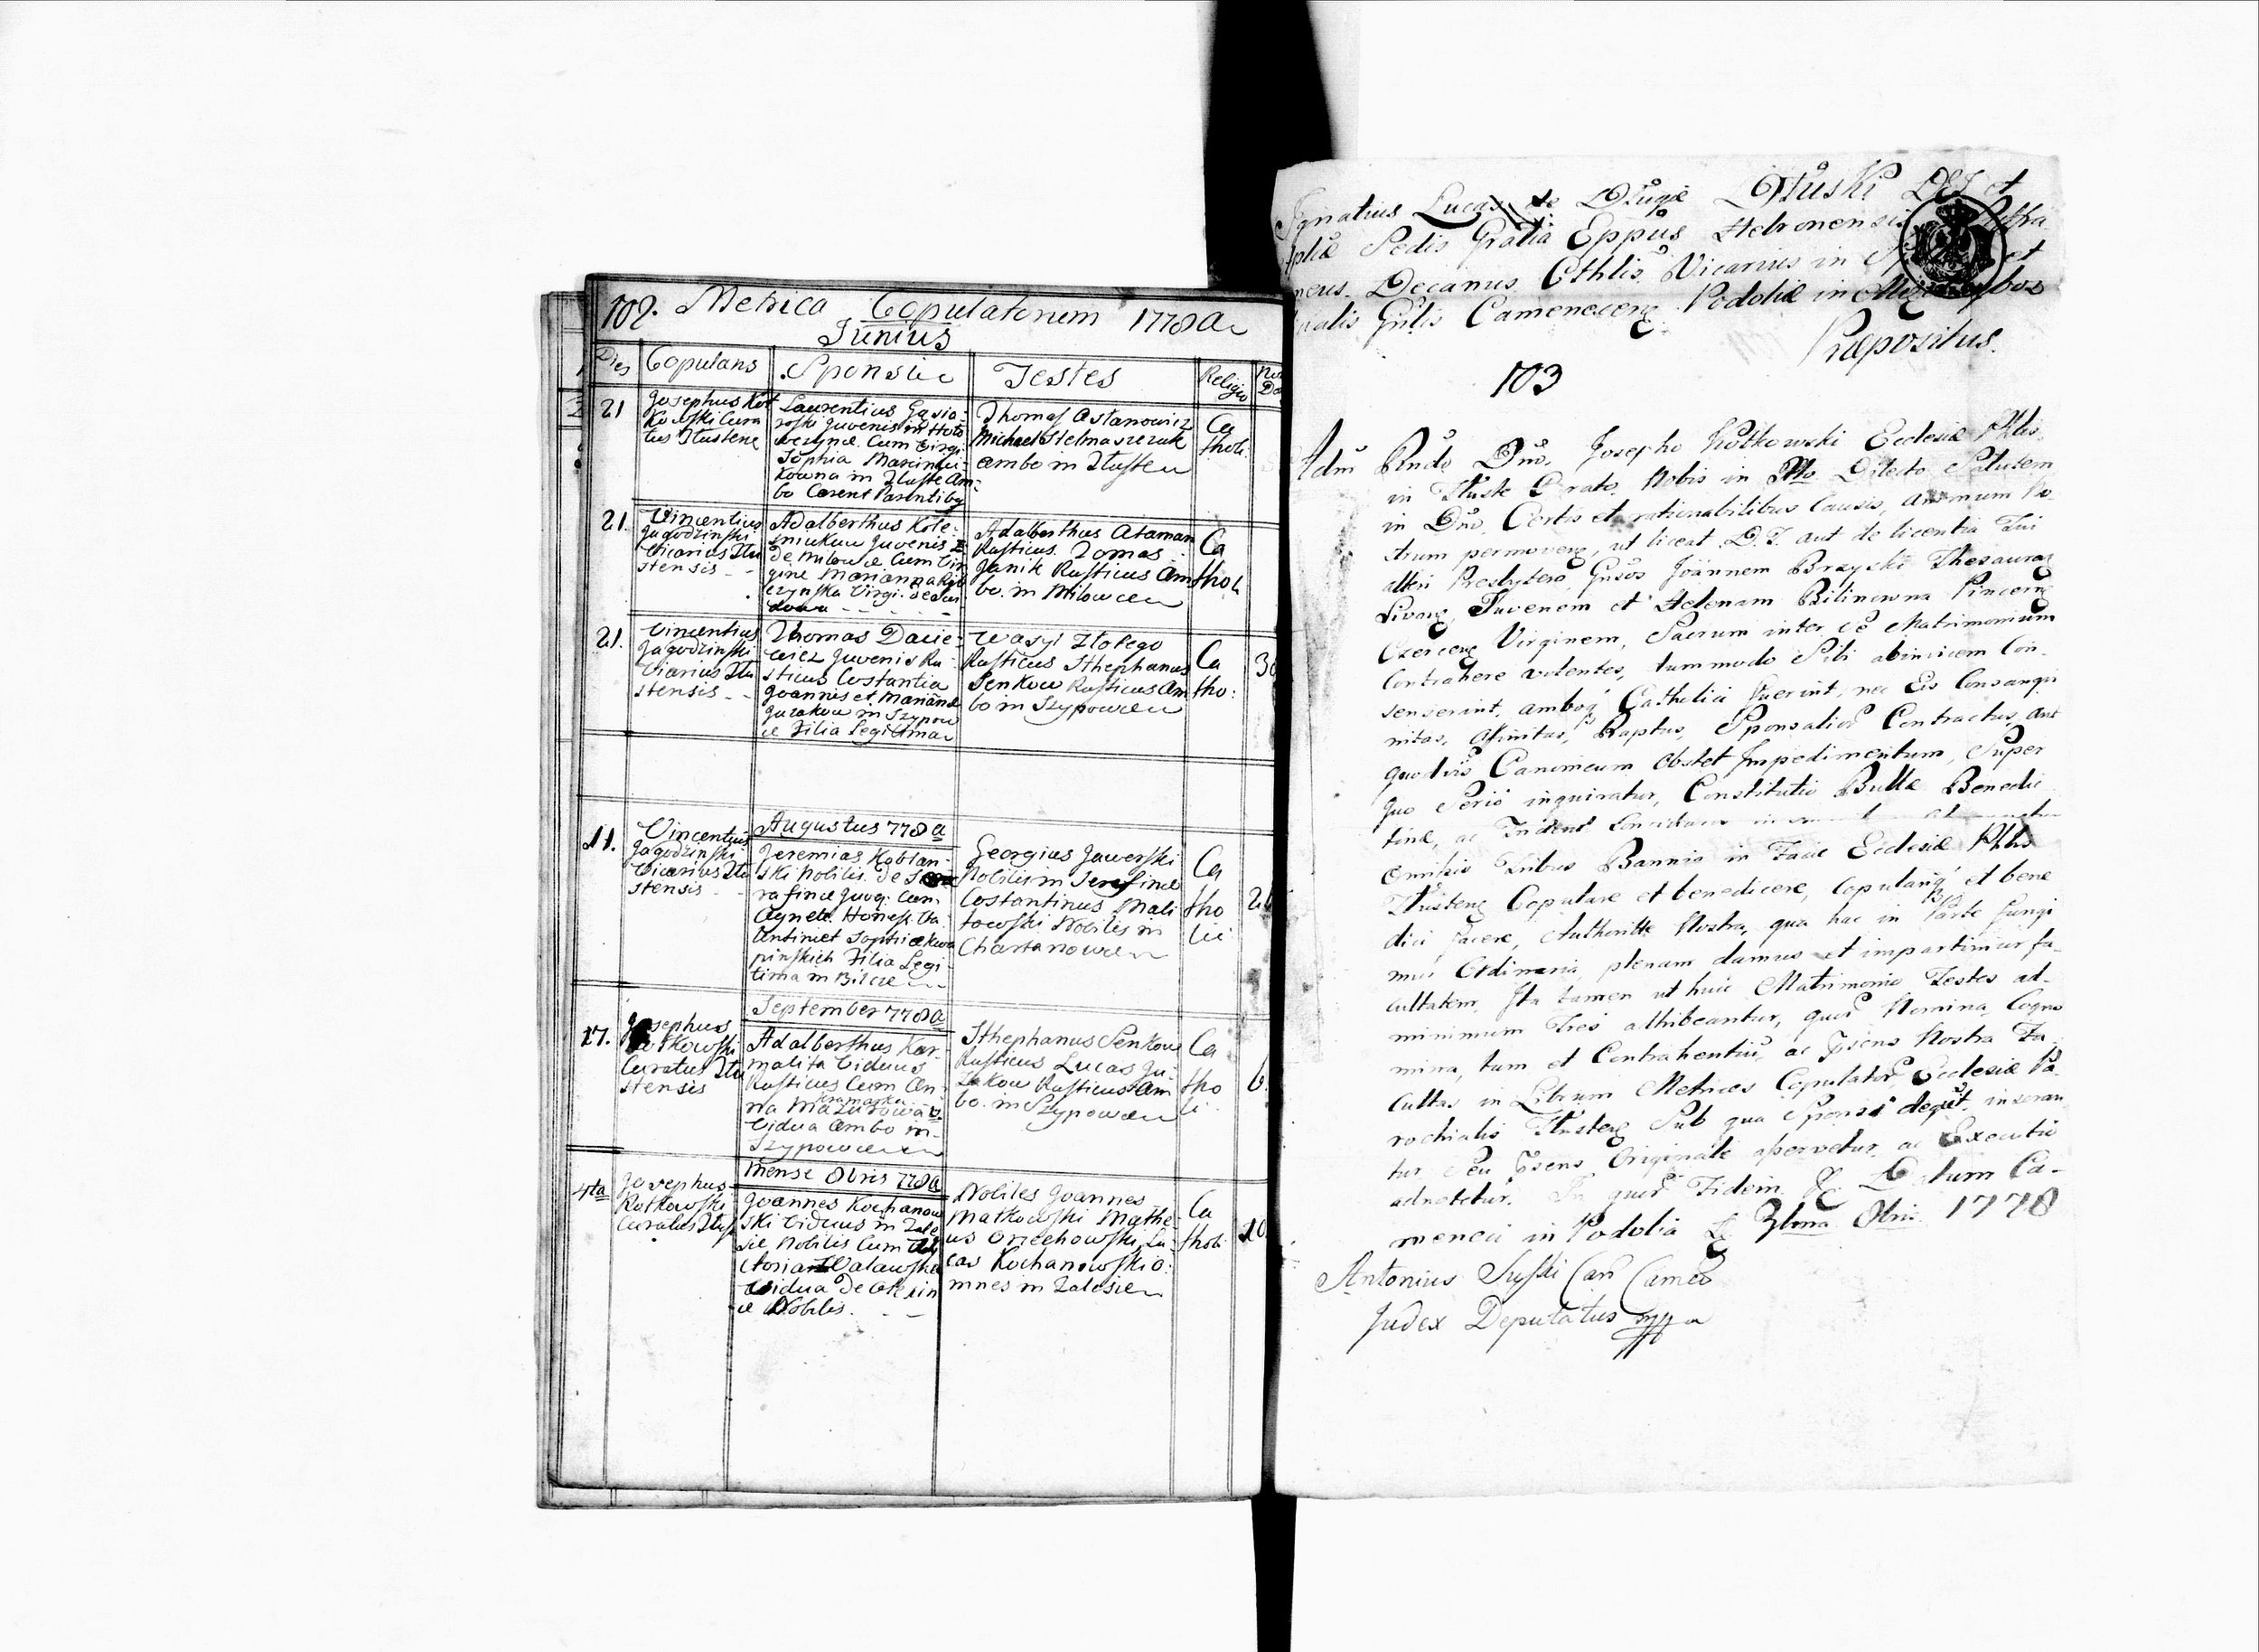 102. Metrica Copulatorum 1778 a
Junius
Dies Copulans Sponsi Testes Religio
21
Josephus Kot
kowski Cura
tus Tlustene
Laurentius Gąsio-
roski Juvenis in Hoło
Cum Virgi
Sophia
kowna in Tluste Am-
bo Carent Parentibq
Thomas Astanowicz
Michael Stelmaszczuk
ambo in Tluste
Ca
tholi.
21.
Vincentius
Jagodzinski
Vicarius Tlu
stensis - -
Adalberthus Kole-
sniukow Juvenis
de Milowce Cum Vir
gine Marianna
czynska Virgi.
Adalberthus Ataman
Rusticus. Tomas
Janik Rusticus Am
bo. in Milowce
Ca
tholi
21.
Vincentius
Jagodzinski
Vicarius Tlu
stensis - -
Thomas Dacie-
wicz Juvenis Ru
sticus Costantia
Joannis et Mariannæ
Juzakow in Szypow
ce Filia Legittima
Wasyl Złotego
Rusticus Sthephanus
Senkow Rusticus Am
bo in Szypowce
Ca
tho:
Augustus 778 a
11.
Vincentius
Jagodzinski
Vicarius Tlu
stensis - -
Jeremias Koblan-
ski Nobilis de
rafince Cum
Agnete. Honest.
Antini et Sophiæ
pinskich Filia Legi-
tima in Bilcze
Georgius Jawerski
Nobilis in Serafince
Costantinus Mali
towski Nobilis in
Chartanowce
Ca
tho
lici
September 778 a
17.
Josephus
Kotkowski
Curatus Tlu
stensis
Adalberthus Kar-
malita Viduus
Rusticus Cum An-
na Mazurowa
Kramarka
Vidua Ambo in
Szypowce
Sthephanus Senkow
Rusticus Lucas Ju-
zakow Rusticus Am
bo. in Szypowce
Ca
tho
li.
6.
Mense 8bris 778 a
4ta
Josephus
Kotkowski
Curatus Tlus
Joannes Kochanow
ski Viduus in Zale
sie Nobilis Cum
Vidua de
ce Nobilis. - -
Nobiles Joannes
Matkowski Mathe-
us Orzechowski Lu-
cas Kochanowski o-
mnes in Zalesie
Ca
tholi
10
Ignatius Lucas de Długie Dłuski DEI et
Aplicæ Sedis Gratia Eppus Hebronensis
Decanus Cthlis Vicarius in et
Gnlis Camenecens Podoliæ in
Præpositus.
103
Adm Rndo Dno. Josepho Kotkowski Ecclesiæ Phlis
in Tluste Nobis in Xto Dilecto Salutem
in Dno. Certis et rationabilibus Causis, animum No-
strum permoveng, ut liceat D. T. aut de licentia Tui
alteri Presbytero, Gnsos Joannem Brzyski Thesaurag
Livong, Juvenem et Helenam Bilinowna Pincerng
Virginem, Sacrum inter se Matrimonium
Contrahere volentes, tummodo Sibi abinvicem Con-
senserint, amboq Catholici fuerint, nec Eis Consangui
nitas, Afinitas, Raptus, Sponsalior Contractus, aut
quodvis Canonicum obstet Impedimentum, Super
quo Serio inquiratur, Constitutio Bullæ Benedic
tinæ, ac
omissis Tribus Bannis in Facie Ecclesiæ Phlis
Tlusteng Copulare et benedicere, copulariq et bene
dici facere, Authoritte Nostra, qua hac in Parte fungi
mur Ordinaria, plenam damus et impartimur fa-
cultatem, Ita tamen ut huic Matrimonio Testes ad-
minimum Tres adhibeantur, quor Nomina, Cogno
mina, tum et Contrahentiu, ac Psens Nostra Fa-
cultas in Librum Metrices Copulator Ecclesiæ Pa-
rochialis Tlusteng Sub qua Sponsi degut, inseran
tur seu Psens Originale aservetur, ac Executio
adnotetur. In quor Fidem &c Datum Ca-
meneci in Podolia D. 8bris 1778
Antonius Can Camen
Judex Deputatus mppa